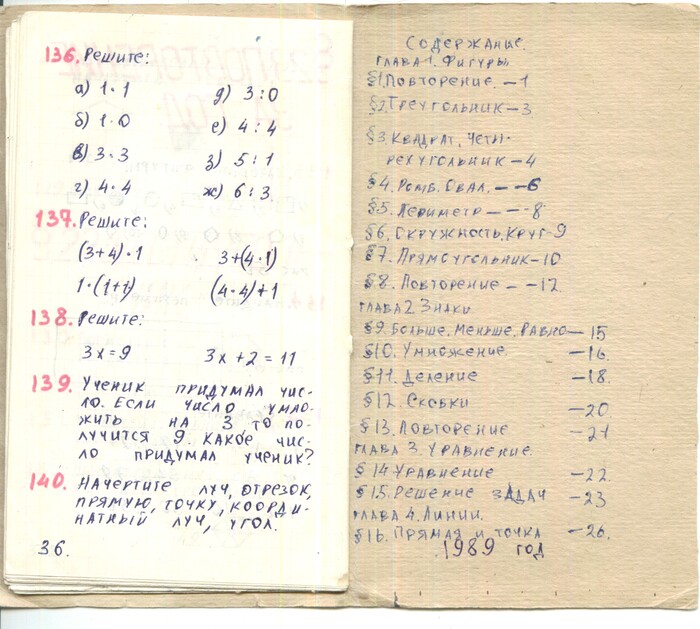 136. Решите:
а) 1·1 д) 3:0
б) 1·0 е) 4:4
в) 3·3 з) 5:1
г) 4·4 ж) 6:3
137. Решите:
(3+4)·1 3+(4·1)
1·(1+1) (4·4)+1
138. Решите:
3x=9 3x+2=11
139. Ученик придумал чис-
ло. Если число умно-
жить на 3 то по-
лучится 9. Какое чис-
ло придумал ученик?
140. Начертите луч, отрезок,
прямую, точку, коорди-
натный луч, угол.
36.
Содержание.
Глава 1. Фигуры.
§1. Повторение. – 1
§2. Треугольник – 3
§3. Квадрат, четы-
рехугольник – 4
§4. Ромб. Овал. – – 6
§5. Периметр – – 8
§6. Окружность. Круг – 9
§7. Прямоугольник – 10
§8. Повторение – – 12
Глава 2. Знаки
§9. Больше. Меньше. Равно – 15
§10. Умножение. – 16
§11. Деление – 18.
§12. Скобки – 20
§13. Повторение – 21
Глава 3. Уравнение.
§14 Уравнение – 22.
§15. Решение задач – 23
Глава 4. Линии.
§16. Прямая и точка – 26.
1989 год